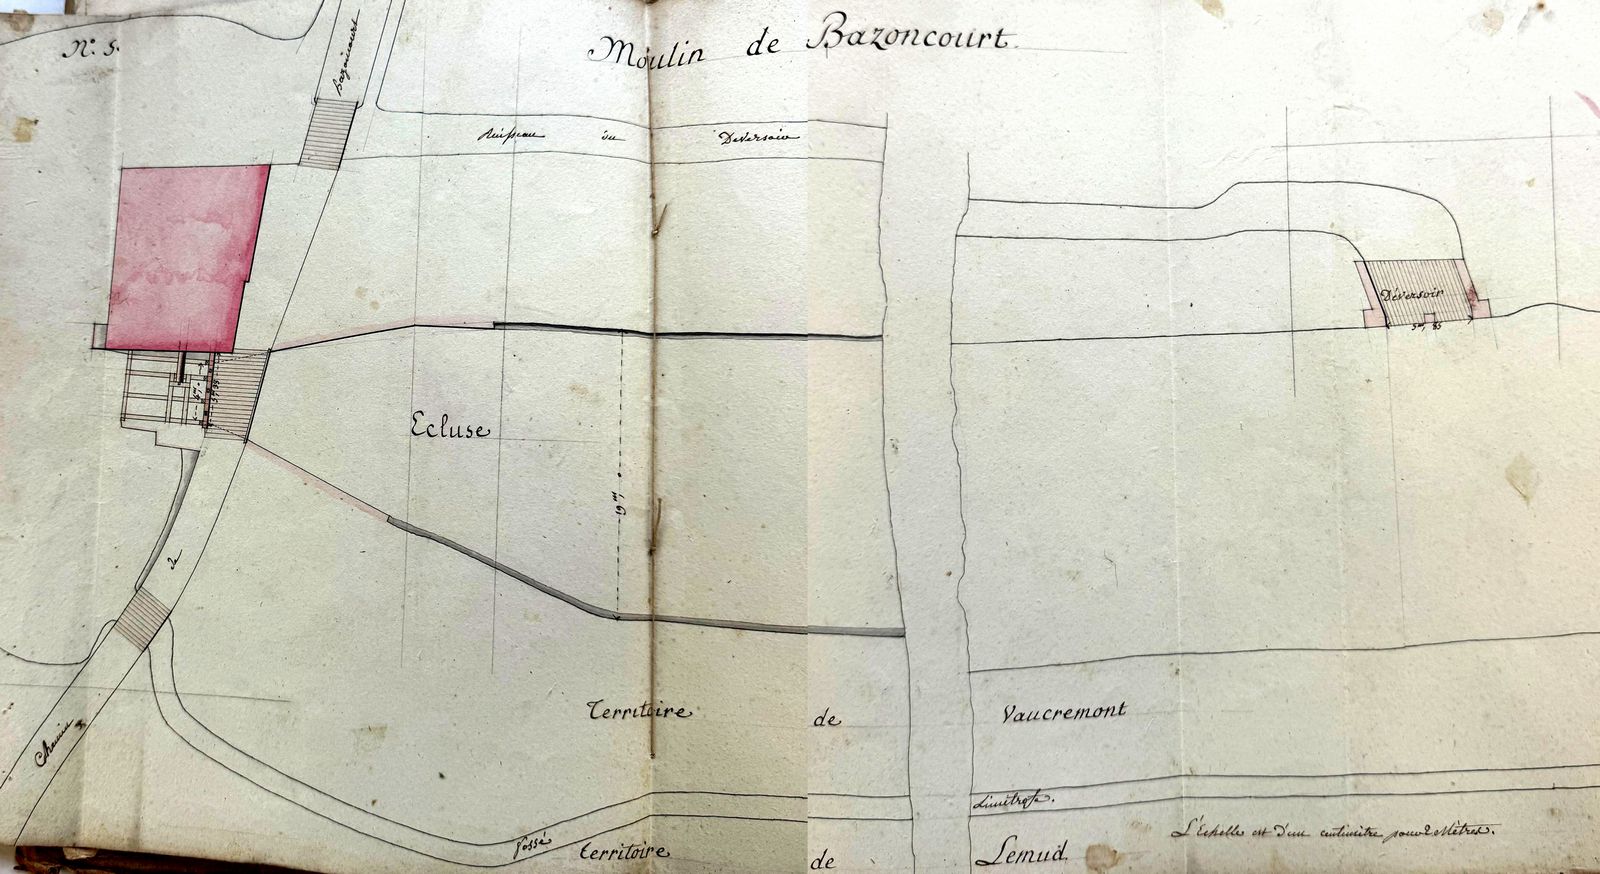 N.° 5.
Moulin de Bazoncourt.
bazoncourt
Ruisseau du Déversoir
Déversoir
5m, 85
Ecluse
19m, 0
de
Chemin
Territoire de Vaucremont
Limitrofe.
fossé
L'Echelle est d'un centimètre pour 2 Mètres.
territoire de Lemud.